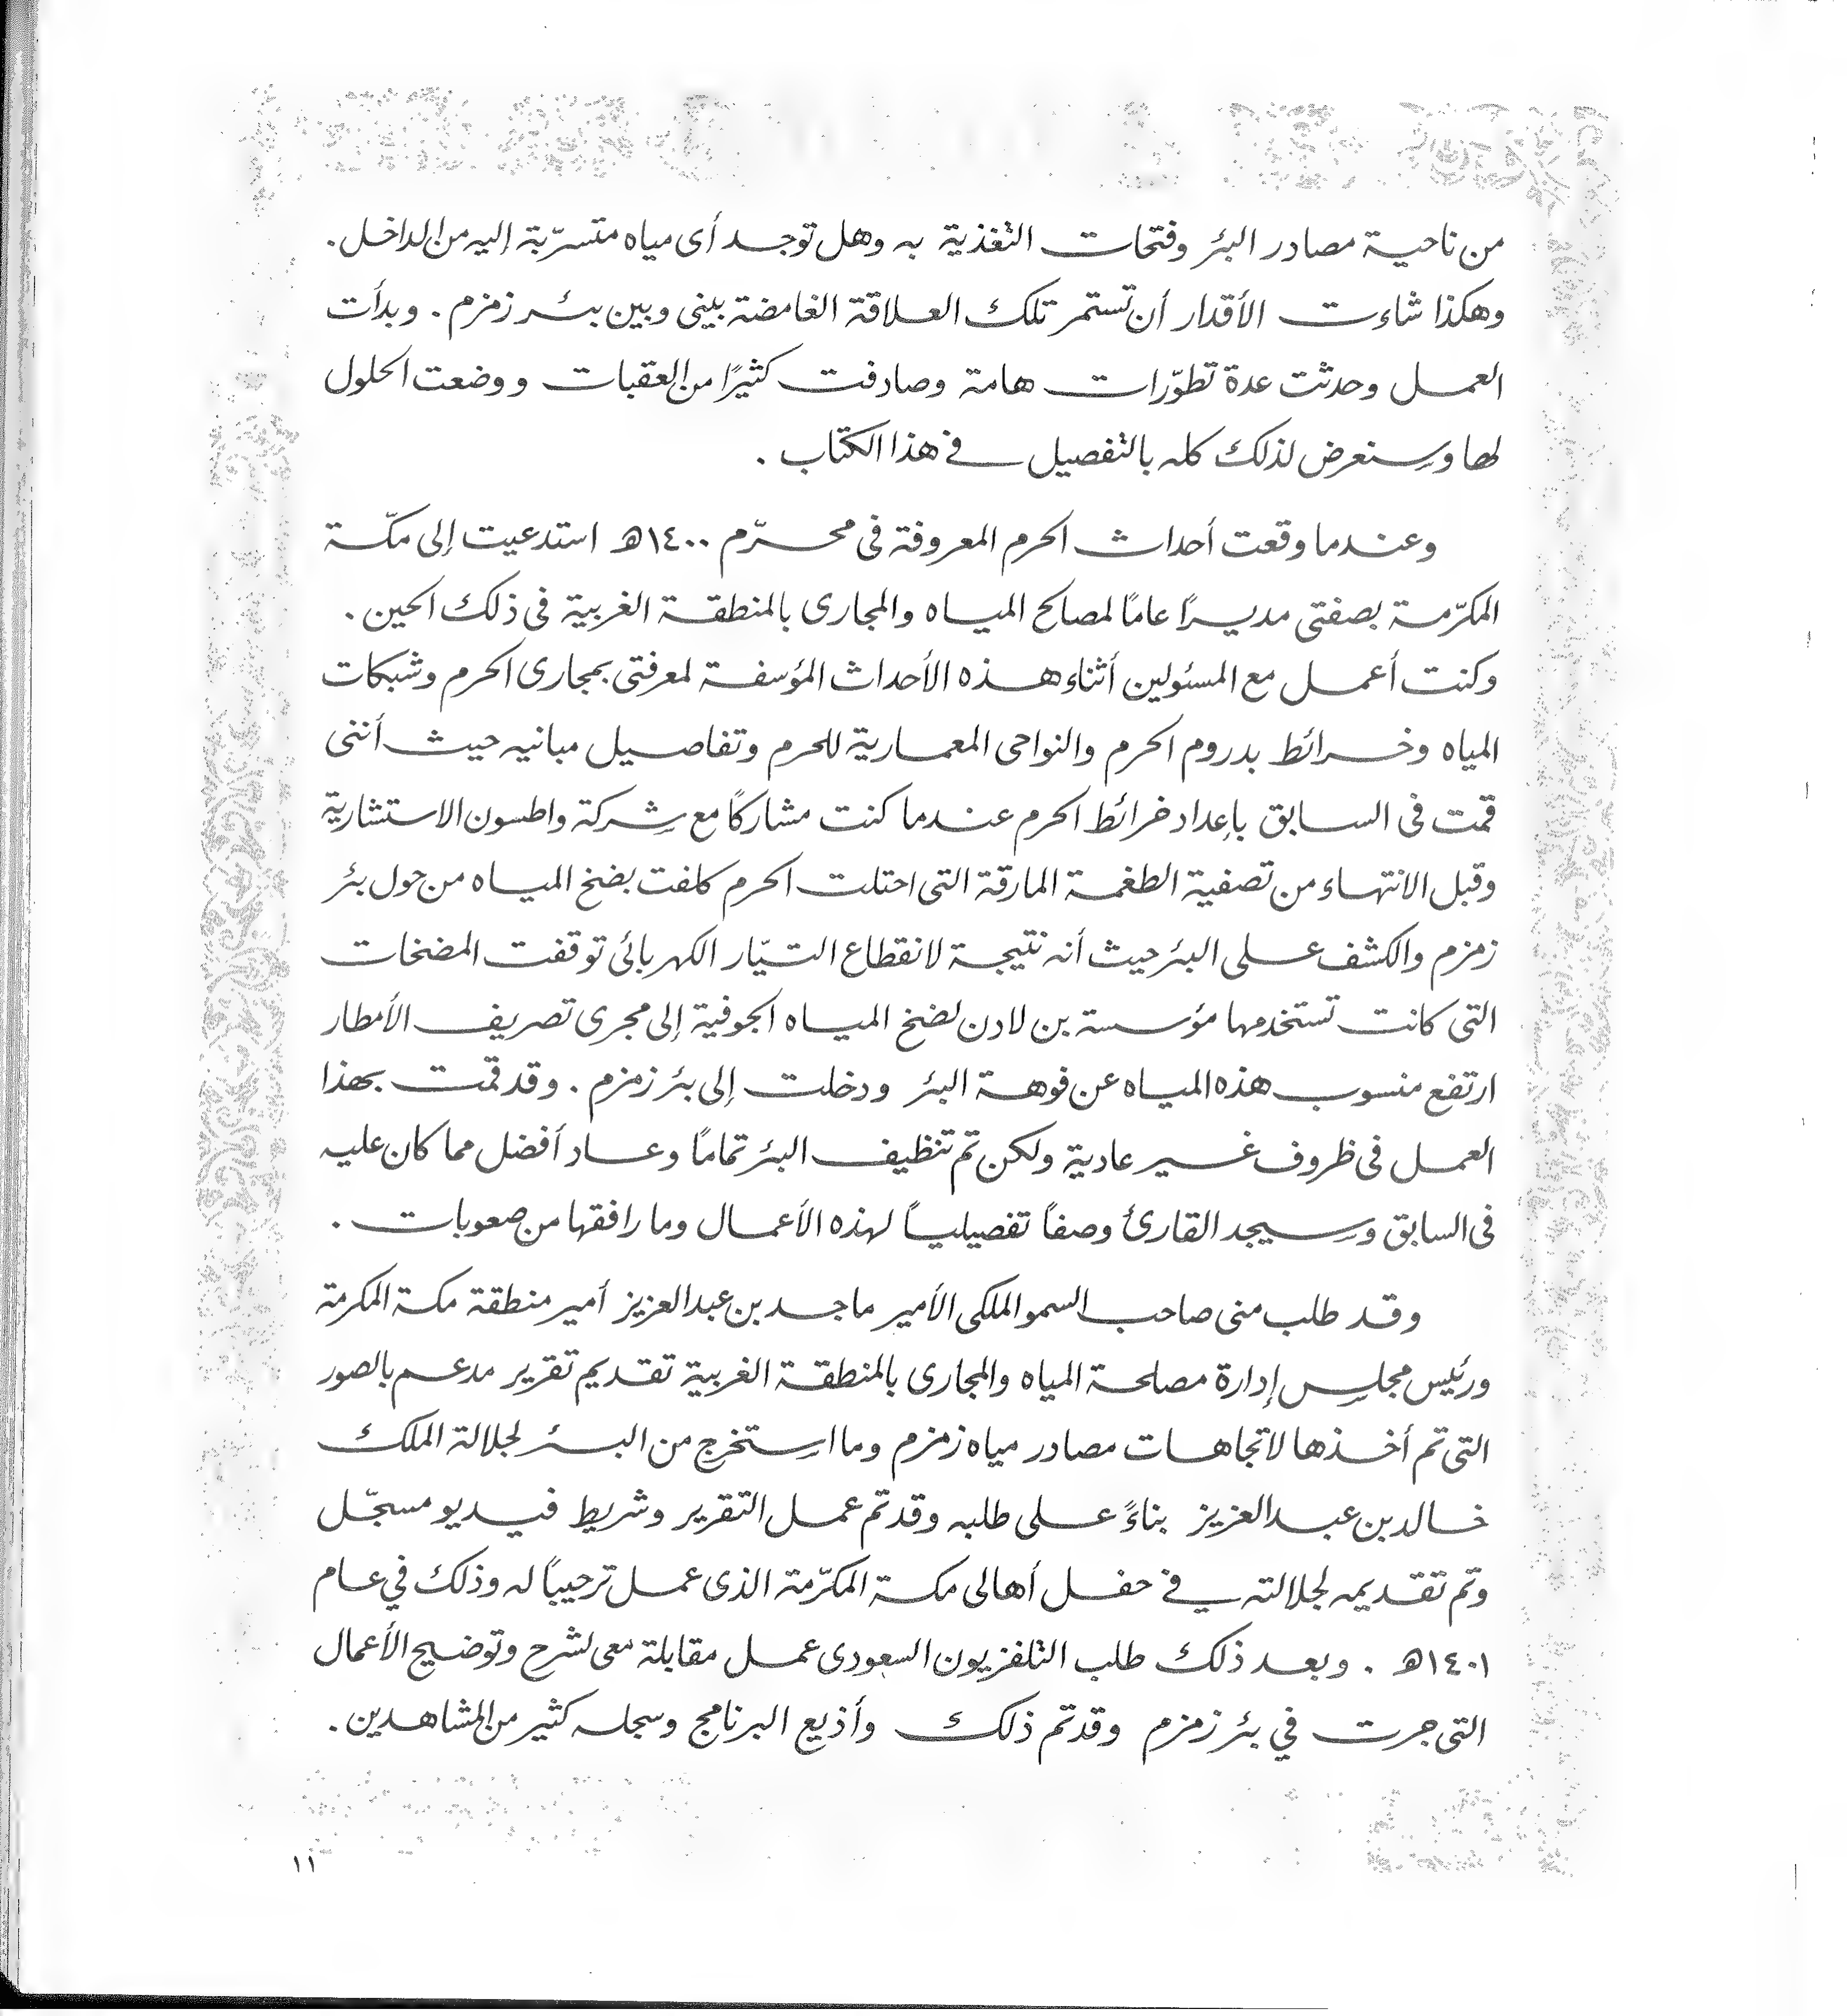 من ناحية مصادر البئر وفتحات التغذية به وهل توجد أى مياه متسرّبة إليه من الداخل .
وهكذا شاءت الأقدار أن تستمر تلك العلاقة الغامضة بينى وبين بئر زمزم . وبدأت
العمل وحدثت عدة تطوّرات هامة وصادفت كثيرًا من العقبات ووضعت الحلول
لها وسنعرض لذلك كله بالتفصيل في هذا الكتاب .
وعندما وقعت أحداث الحرم المعروفة فى محرّم ١٤٠٠هـ استدعيت إلى مكّة
المكرّمة بصفتى مديرًا عامًا لمصالح المياه والمجارى بالمنطقة الغربية فى ذلك الحين .
وكنت أعمل مع المسئولين أثناء هذه الأحداث المؤسفة لمعرفتى بمجارى الحرم وشبكات
المياه وخرائط بدروم الحرم والنواحى المعمارية للحرم وتفاصيل مبانيه حيث أننى
قمت فى السابق بإعداد خرائط الحرم عندما كنت مشاركًا مع شركة واطسون الاستشارية
وقبل الانتهاء من تصفية الطغمة المارقة التى احتلت الحرم كلفت بضخ المياه من حول بئر
زمزم والكشف على البئر حيث أنه نتيجة لانقطاع التيّار الكهربائى توقفت المضخات
التى كانت تستخدمها مؤسسة بن لادن لضخ المياه الجوفية إلى مجرى تصريف الأمطار
ارتفع منسوب هذه المياه عن فوهة البئر ودخلت إلى بئر زمزم . وقد قمت بهذا
العمل فى ظروف غير عادية ولكن تم تنظيف البئر تمامًا وعاد أفضل مما كان عليه
فى السابق وسيجد القارئ وصفاً تفصيلياً لهذه الأعمال وما رافقها من صعوبات .
وقد طلب منى صاحب السمو الملكى الأمير ماجد بن عبد العزيز أمير منطقة مكة المكرمة
ورئيس مجلس إدارة مصلحة المياه والمجارى بالمنطقة الغربية تقديم تقرير مدعم بالصور
التى تم أخذها لاتجاهات مصادر مياه زمزم وما استخرج من البئر لجلالة الملك
خالد بن عبد العزيز بناءً على طلبه وقد تم عمل التقرير وشريط فيديو مسجّل
وتم تقديمه لجلالته في حفل أهالى مكة المكرّمة الذى عمل ترحيباً له وذلك في عام
١٤٠١هـ . وبعد ذلك طلب التلفزيون السعودى عمل مقابلة معى لشرح وتوضيح الأعمال
التى جرت في بئر زمزم وقد تم ذلك وأذيع البرنامج وسجله كثير من المشاهدين .
١١